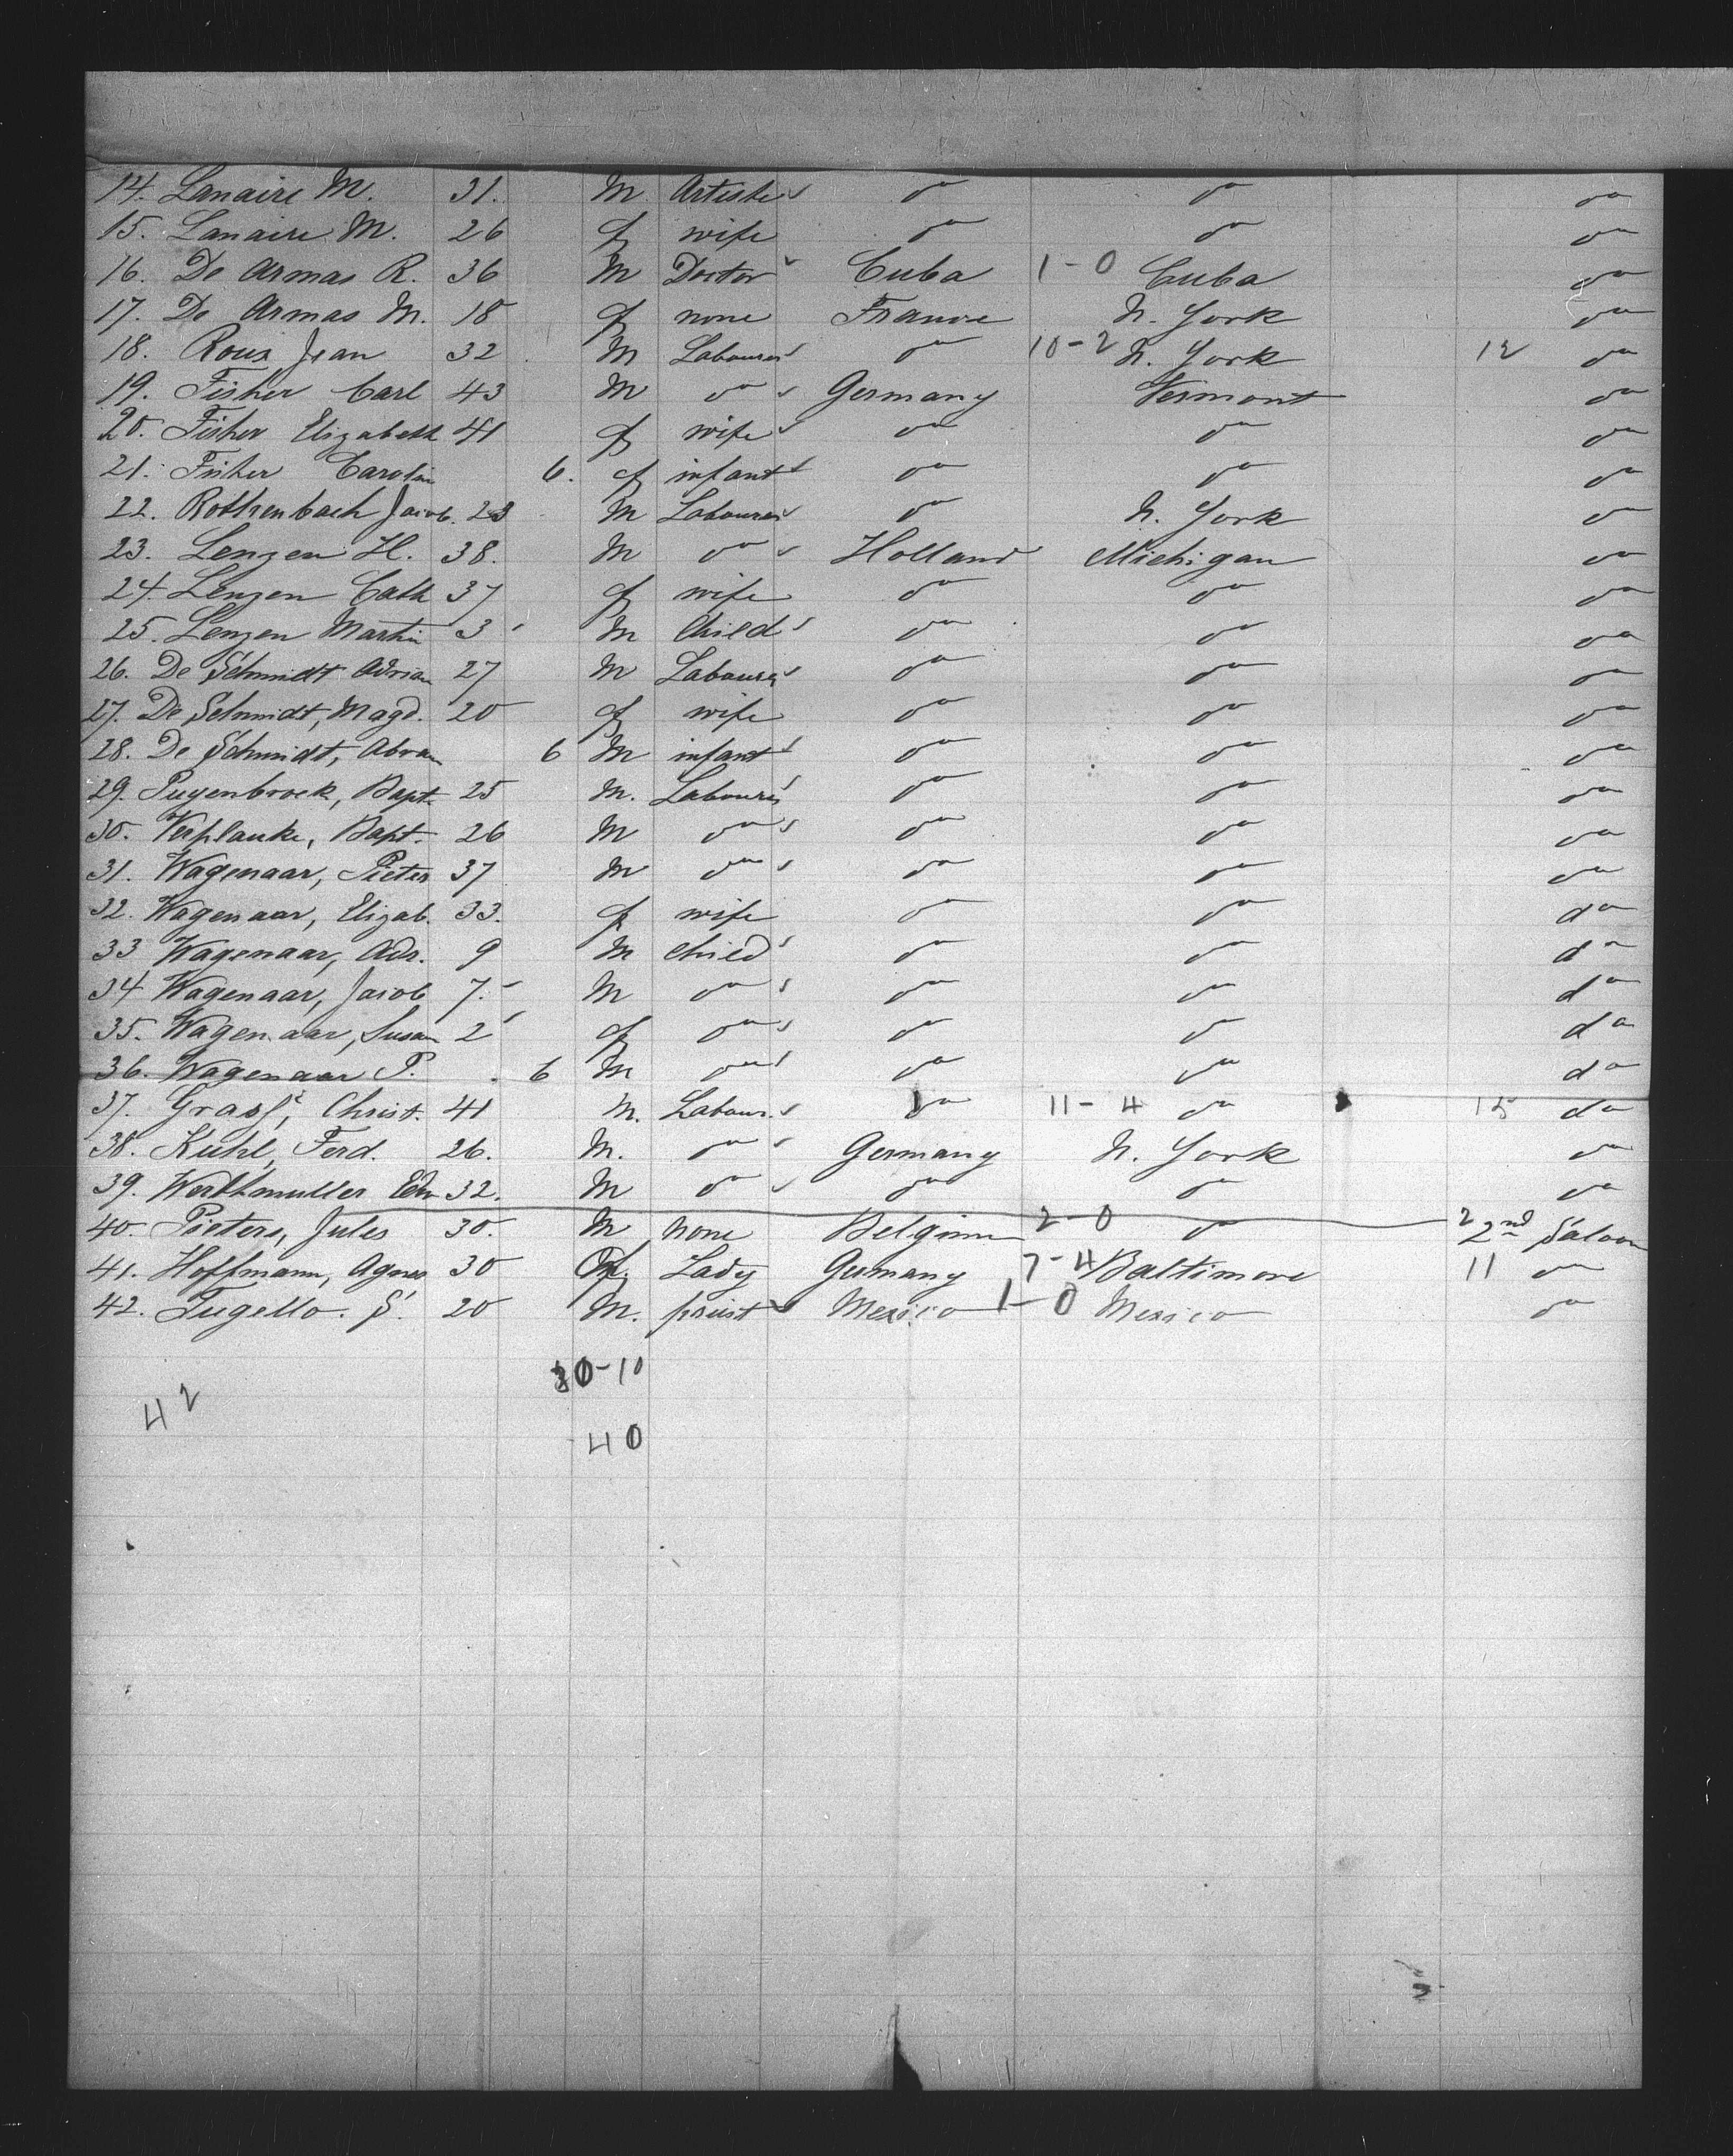 14. Lanaire M. 31. M Artiste do do do
15. Lanaire M. 26 f wife do do do
16. De Armas R. 36 M Doctor Cuba 1-0 Cuba do
17. De Armas M. 18 f none France N. York do
18. Roux Jean 32 M Labourer do 10-2 N. York 12 do
19. Fisher Carl 43 M do Germany Vermont do
20. Fisher Elizabeth 41 f wife do do do
21. Fisher Carolin 6. f infant do do do
22. Rothenbach Jacob. 23 M Labourer do N. York do
23. Lenzen H. 38. M do Holland Michigan do
24. Lenzen Cath 37 f wife do do do
25. Lenzen Martin 3 M Child do do do
26. De Schmidt Adrian 27 M Labourer do do do
27. De Schmidt, Magd. 20 f wife do do do
28. De Schmidt, Abram 6 M infant do do do
29. Puyenbroek, Bapt. 25 M. Labourer do do do
30. Verplanke, Bapt. 26 M do do do do
31. Wagenaar, Pieter 37 M do do do do
32. Wagenaar, Elizab. 33. f wife do do do
33 Wagenaar, Adr. 9 M child do do do
34 Wagenaar, Jacob 7. M do do do do
35. Wagenaar, Susan 2 f do do do do
36. Wagenaar P. 6 M do do do do
37. Christ. 41 M. Labour. do 11-4 do 15 do
38. Kuhl, Ferd. 26. M. do Germany N. York do
39. Werthmuller Edw 32. M do do do do
40. Pieters, Jules 30. M none Belgium 2-0 do 2 2nd Saloon
41. Hoffmann, Agnes 30 f. Lady Germany 7-4 Baltimore 11 do
42. Tugello. S. 20 M. priest Mexico 1-0 Mexico do
30-10
42
40